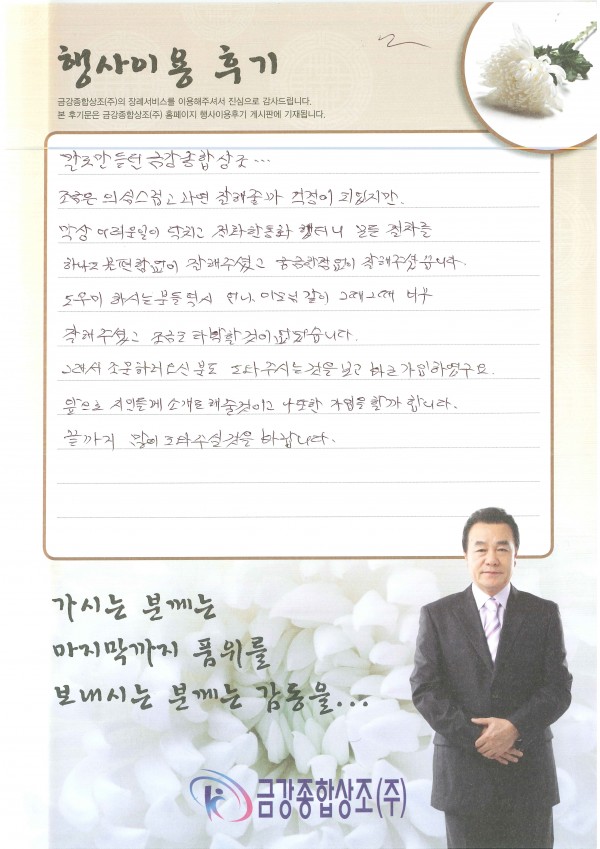 행사이용 후기
금강종합상조(주)의 장례서비스를 이용해주셔서 진심으로 감사드립니다.
본 후기문은 금강종합상조(주) 홈페이지 행사이용후기 게시판에 기재됩니다.
말로만 듣던 금강종합상조...
조금은 의심스럽고 과연 잘해줄까 걱정이 되었지만.
막상 어려운일이 닥치고 전화한통화 했더니 모든 절차를
하나도 불편함없이 잘해주셨고 궁금한점없이 잘해주셨습니다.
도우미 하시는분들역시 언니, 이모같이 그때그때 너무
잘해주셨고 조금도 타박할것이 없었습니다.
그래서 조문하러오신 분도 도와주시는것을 보고 바로가입하였구요.
앞으로 지인들께 소개도해줄것이고 나또한 가입을 할까 합니다.
끝까지 많이 도와주실것을 바랍니다.
가시는 분께는
마지막까지 품위를
보내시는 분께는 감동을...
금강종합상조(주)